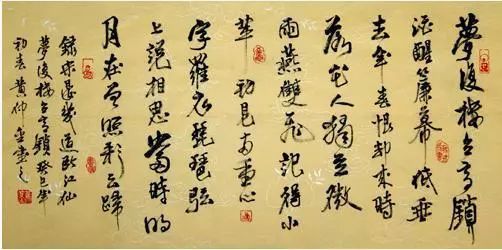 夢後樓台高鎖
酒醒簾幕低垂
去年春恨却來時
落花人獨立微
雨燕雙飛記得小
蘋初見兩重心
字羅衣琵琶弦
上說相思當時明
月在曾照彩云歸
錄宋晏幾道臨江仙
夢後樓台高鎖癸巳年
初春黄仲金